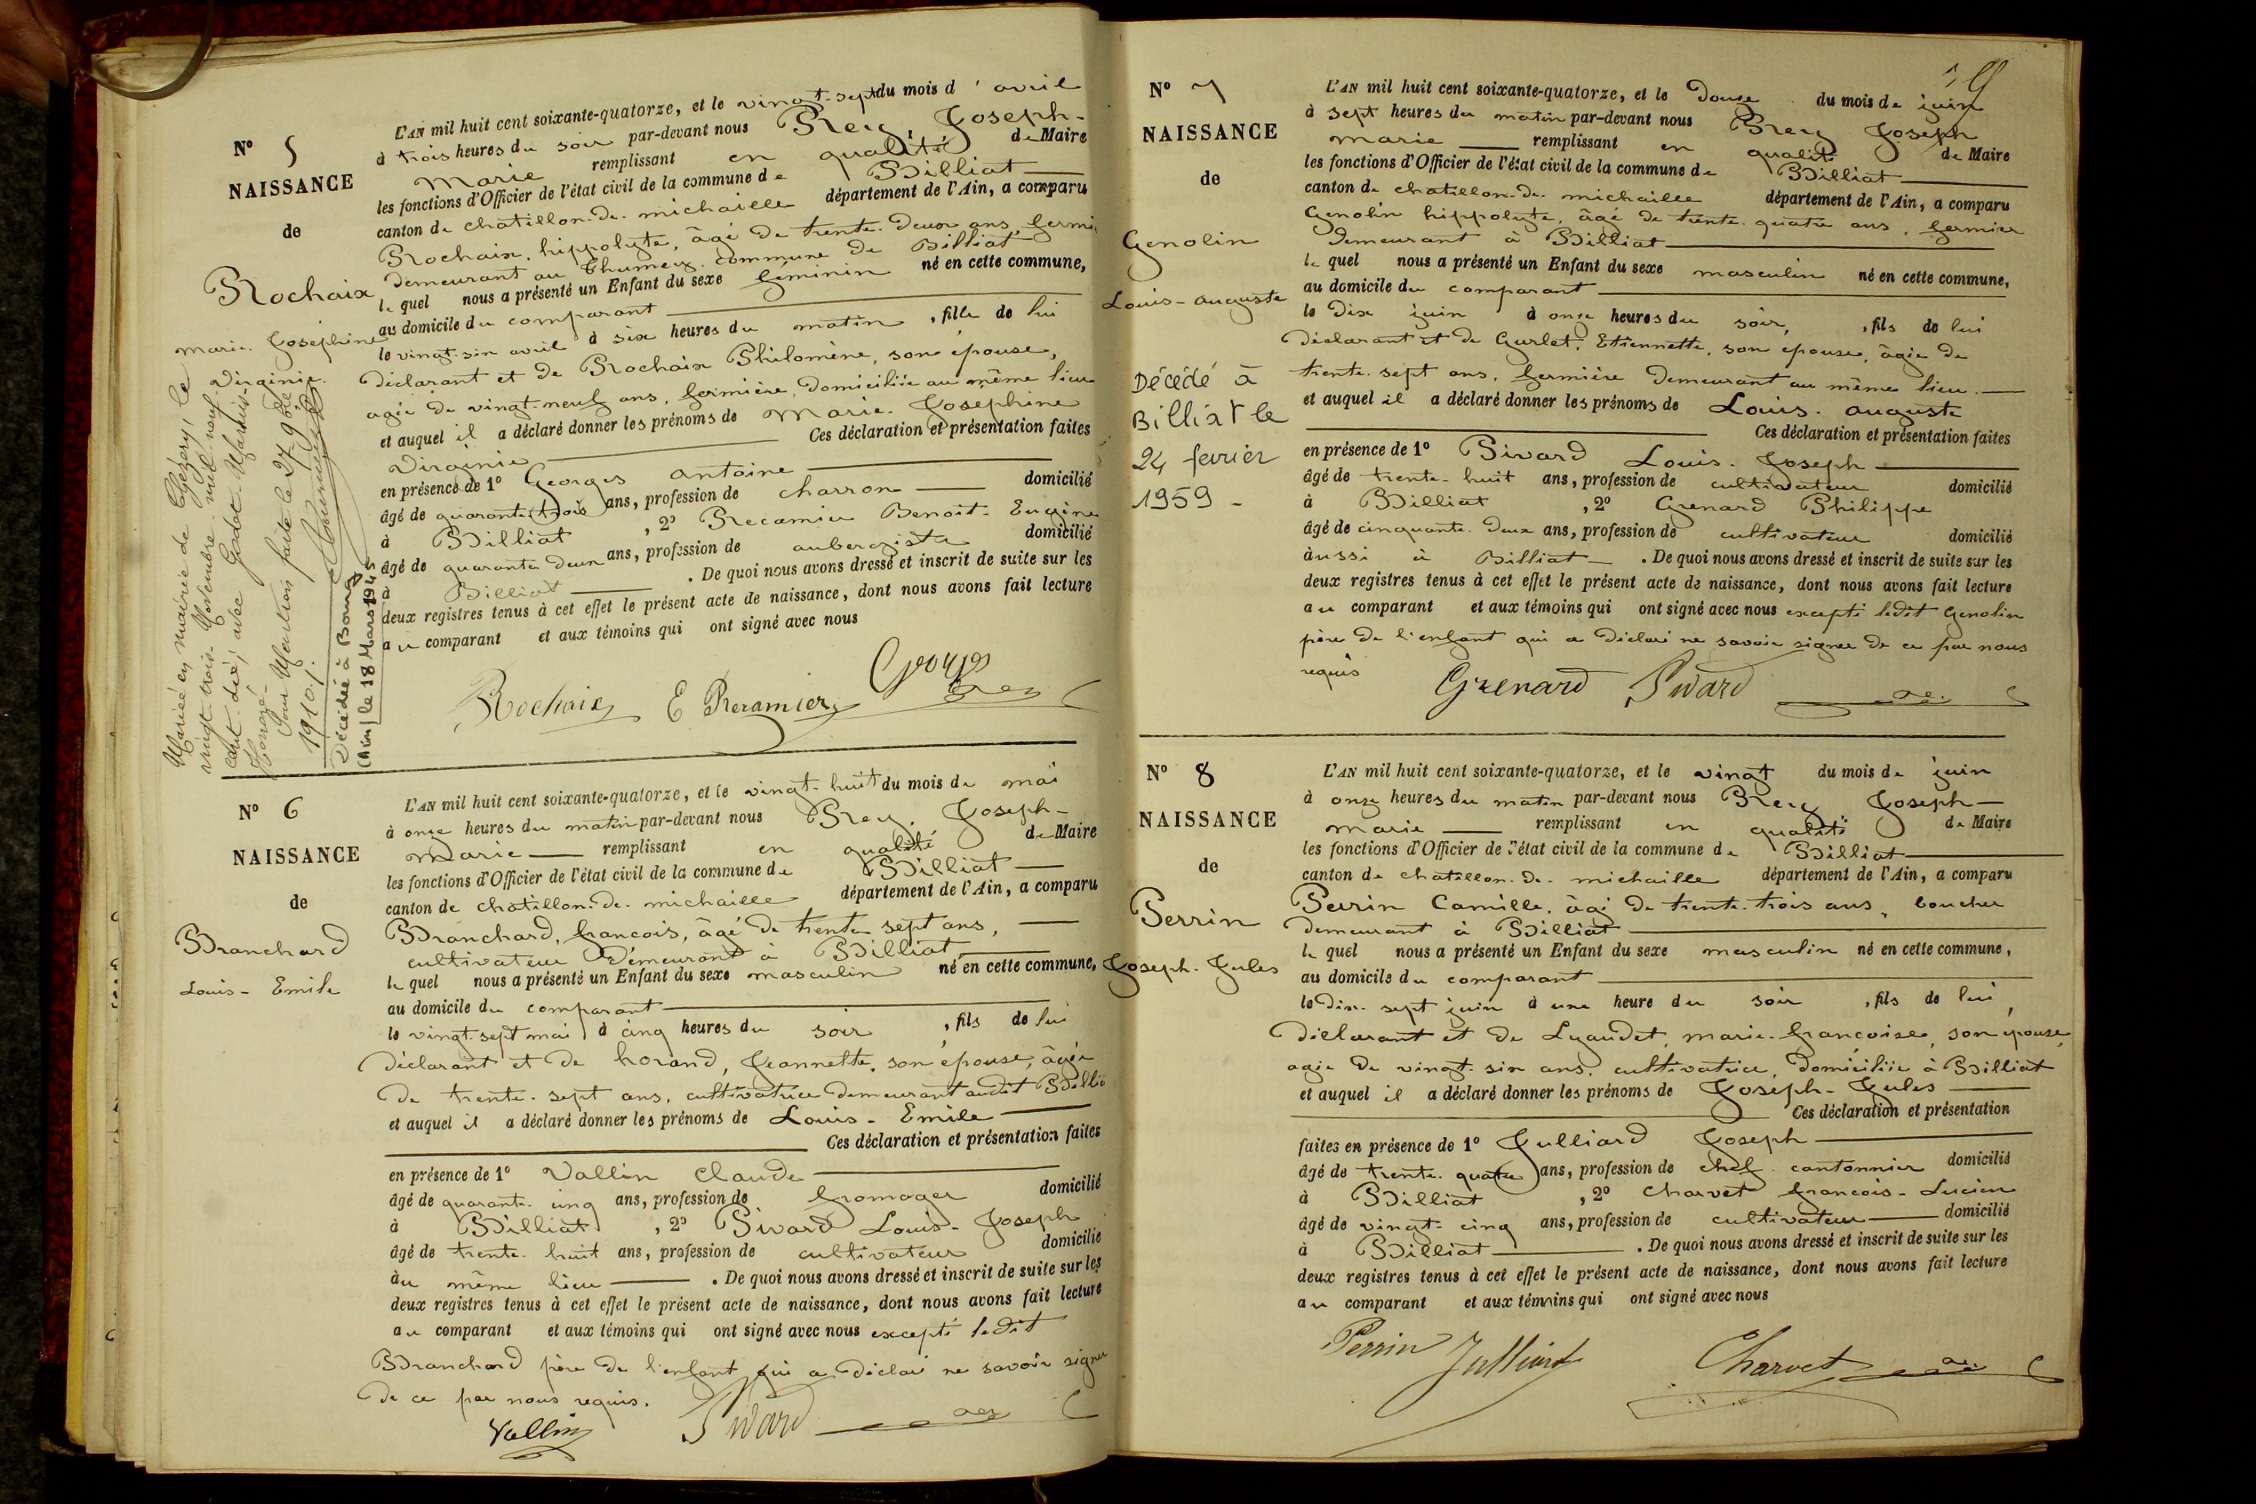 N° 5
NAISSANCE
de
Rochaix
Marie-Joséphine
Virginie.
Mariée en mairie de Lézery, le
vingt-trois Novembre mil neuf
cent dix, avec Godet Marius
Honoré.
Pour Mention faite le 27 9bre
1910.
Décédée à Bourg
(Ain) le 18 Mars 1945
L'AN mil huit cent soixante-quatorze, et le vingt-sept du mois d'avril
à trois heures du soir par-devant nous Rey, Joseph-
Marie remplissant en qualité de Maire
les fonctions d'Officier de l'état civil de la commune de Billiat
canton de chatillon-de-michaille département de l'Ain, a comparu
Rochaix, hippolyte, âgé de trente-deux ans, fermier
demeurant au commune de Billiat
le quel nous a présenté un Enfant du sexe feminin né en cette commune,
au domicile du comparant
le vingt-six avril à six heures du matin, fille de lui
déclarant et de Rochaix Philomène, son épouse,
agée de vingt-neuf ans, fermière, domiciliée au même lieu
et auquel il a déclaré donner les prénoms de Marie-Josephine
Virginie Ces déclaration et présentation faites
en présence de 1° Georges antoine
âgé de quarante-trois ans, profession de charron domicilié
à Billiat, 2° Recamier Benoit-Eugène
âgé de quarante deux ans, profession de aubergiste domicilié
à Billiat. De quoi nous avons dressé et inscrit de suite sur les
deux registres tenus à cet effet le présent acte de naissance, dont nous avons fait lecture
au comparant et aux témoins qui ont signé avec nous
Rochaix E Recamier Georges Rey
N° 6
NAISSANCE
de
Branchard
Louis-Emile
L'AN mil huit cent soixante-quatorze, et le vingt-huit du mois de mai
à onze heures du matin par-devant nous Rey, Joseph-
Marie remplissant en qualité de Maire
les fonctions d'Officier de l'état civil de la commune de Billiat
canton de chatillon-de-michaille département de l'Ain, a comparu
Branchard, francois, âgé de trente sept ans,
cultivateur demeurant à Billiat,
le quel nous a présenté un Enfant du sexe masculin né en cette commune,
au domicile du comparant
le vingt-sept mai à cinq heures du soir, fils de lui
déclarant et de horand, Jeannette, son épouse, âgée
de trente-sept ans, cultivatrice demeurant audit Billiat
et auquel il a déclaré donner les prénoms de Louis-Emile
Ces déclaration et présentation faites
en présence de 1° Vallin Claude
âgé de quarante-cinq ans, profession de fromager domicilié
à Billiat, 2° Pivard Louis-Joseph
âgé de trente-huit ans, profession de cultivateur domicilié
au même lieu. De quoi nous avons dressé et inscrit de suite sur les
deux registres tenus à cet effet le présent acte de naissance, dont nous avons fait lecture
au comparant et aux témoins qui ont signé avec nous excepté ledit
Branchard père de l'enfant qui a déclaré ne savoir signer
de ce par nous requis.
Vallin Pivard Rey
N° 7
NAISSANCE
de
Genolin
Louis-auguste
Décédé à
Billiat le
24 fevrier
1959 -
L'AN mil huit cent soixante-quatorze, et le douze du mois de juin
à sept heures du matin par-devant nous Rey Joseph
marie remplissant en qualité de Maire
les fonctions d'Officier de l'état civil de la commune de Billiat
canton de chatillon-de-michaille département de l'Ain, a comparu
Genolin hippolyte, âgé de trente-quatre ans, fermier
demeurant à Billiat
le quel nous a présenté un Enfant du sexe masculin né en cette commune,
au domicile du comparant
le dix juin à onze heures du soir, fils de lui
déclarant et de Gurlet, Etiennette, son épouse, âgée de
trente-sept ans, fermière demeurant au même lieu.
et auquel il a déclaré donner les prénoms de Louis-auguste
Ces déclaration et présentation faites
en présence de 1° Pivard Louis-Joseph
âgé de trente-huit ans, profession de cultivateur domicilié
à Billiat, 2° Grenard Philippe
âgé de cinquante-deux ans, profession de cultivateur domicilié
aussi à Billiat. De quoi nous avons dressé et inscrit de suite sur les
deux registres tenus à cet effet le présent acte de naissance, dont nous avons fait lecture
au comparant et aux témoins qui ont signé avec nous excepté ledit Genolin
père de l'enfant qui a déclaré ne savoir signer de ce par nous
requis
Grenard Pivard Rey
N° 8
NAISSANCE
de
Perrin
Joseph-Jules
L'AN mil huit cent soixante-quatorze, et le vingt du mois de juin
à onze heures du matin par-devant nous Rey Joseph-
marie remplissant en qualité de Maire
les fonctions d'Officier de l'état civil de la commune de Billiat
canton de chatillon-de-michaille département de l'Ain, a comparu
Perrin Camille, âgé de trente-trois ans, boucher
demeurant à Billiat
le quel nous a présenté un Enfant du sexe masculin né en cette commune,
au domicile du comparant
le dix-sept juin à une heure du soir, fils de lui
déclarant et de Lyaudet, marie-francoise, son épouse,
agée de vingt-six ans, cultivatrice, domiciliée à Billiat
et auquel il a déclaré donner les prénoms de Joseph-Jules
Ces déclaration et présentation
faites en présence de 1° Julliard Joseph
âgé de trente-quatre ans, profession de chef cantonnier domicilié
à Billiat, 2° Charvet francois-Lucien
âgé de vingt-cinq ans, profession de cultivateur domicilié
à Billiat. De quoi nous avons dressé et inscrit de suite sur les
deux registres tenus à cet effet le présent acte de naissance, dont nous avons fait lecture
au comparant et aux témoins qui ont signé avec nous
Perrin Julliard Charvet Rey